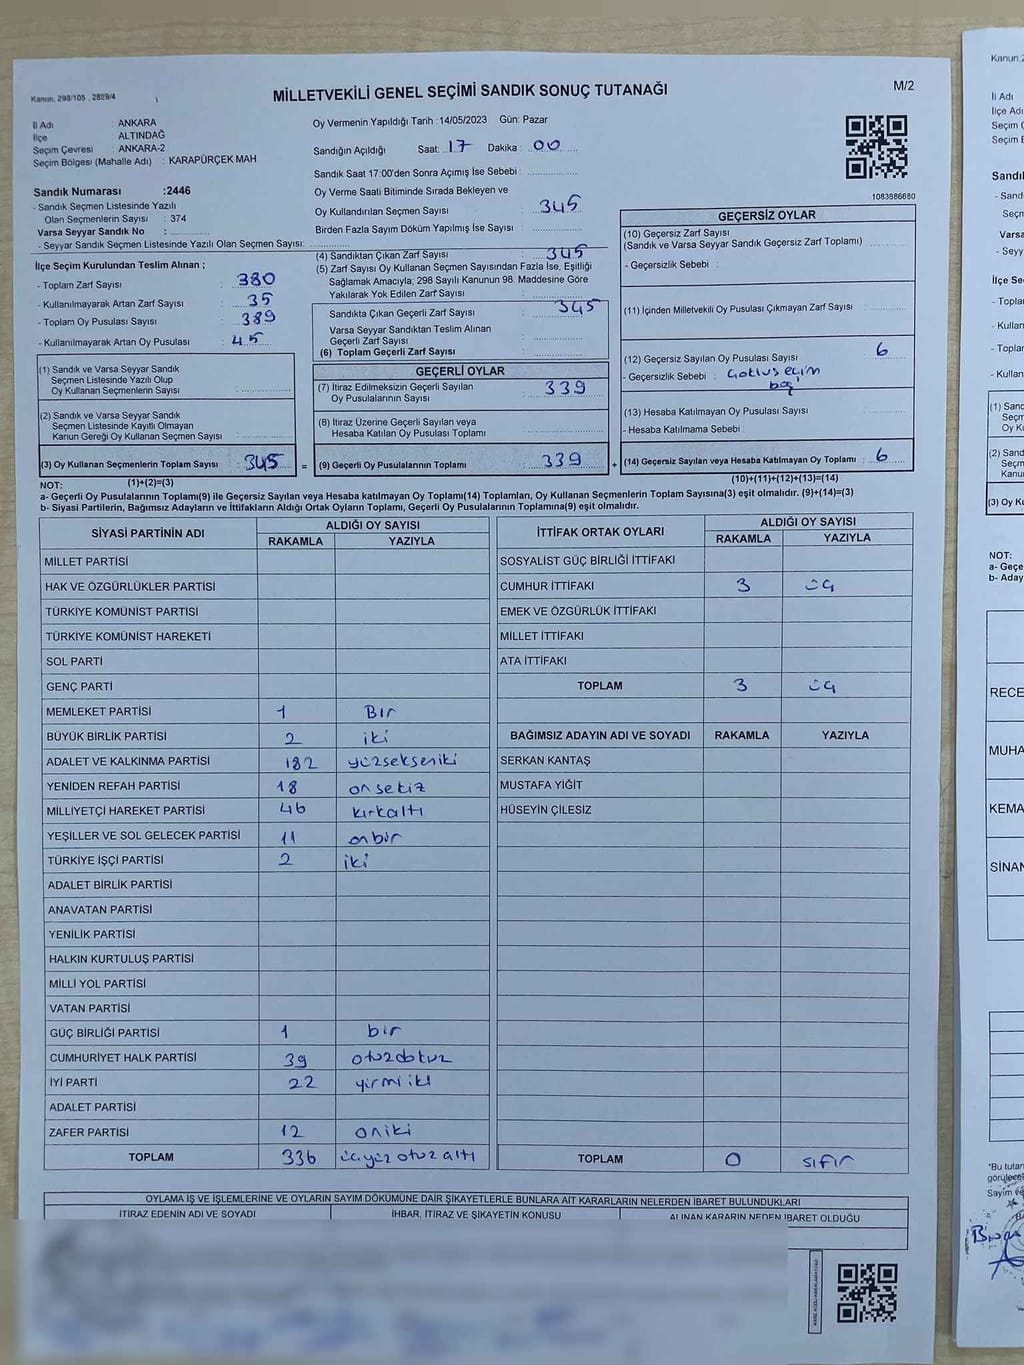 Kanun, 298/105 , 2839/4
MİLLETVEKİLİ GENEL SEÇİMİ SANDIK SONUÇ TUTANAĞI
M/2
İl Adı : ANKARA
İlçe ALTINDAĞ
Seçim Çevresi : ANKARA-2
Seçim Bölgesi (Mahalle Adı) : KARAPÜRÇEK MAH
Sandık Numarası :2446
- Sandık Seçmen Listesinde Yazılı
Olan Seçmenlerin Sayısı : 374
Varsa Seyyar Sandık No :
- Seyyar Sandık Seçmen Listesinde Yazılı Olan Seçmen Sayısı:
Oy Vermenin Yapıldığı Tarih :14/05/2023 Gün: Pazar
Sandığın Açıldığı Saat: 17 Dakika : 00
Sandık Saat 17:00'den Sonra Açımış İse Sebebi :
Oy Verme Saati Bitiminde Sırada Bekleyen ve
Oy Kullandırılan Seçmen Sayısı : 345
Birden Fazla Sayım Döküm Yapılmış İse Sayısı :
1083686680
İlçe Seçim Kurulundan Teslim Alınan ;
- Toplam Zarf Sayısı : 380
- Kullanılmayarak Artan Zarf Sayısı : 35
- Toplam Oy Pusulası Sayısı : 389
- Kullanılmayarak Artan Oy Pusulası : 45
(1) Sandık ve Varsa Seyyar Sandık
Seçmen Listesinde Yazılı Olup
Oy Kullanan Seçmenlerin Sayısı :
(2) Sandık ve Varsa Seyyar Sandık
Seçmen Listesinde Kayıtlı Olmayan
Kanun Gereği Oy Kullanan Seçmen Sayısı :
(3) Oy Kullanan Seçmenlerin Toplam Sayısı : 345 =
(1)+(2)=(3)
(4) Sandıktan Çıkan Zarf Sayısı : 345
(5) Zarf Sayısı Oy Kullanan Seçmen Sayısından Fazla İse, Eşitliği
Sağlamak Amacıyla; 298 Sayılı Kanunun 98. Maddesine Göre
Yakılarak Yok Edilen Zarf Sayısı :
Sandıkta Çıkan Geçerli Zarf Sayısı : 345
Varsa Seyyar Sandıktan Teslim Alınan
Geçerli Zarf Sayısı :
(6) Toplam Geçerli Zarf Sayısı :
GEÇERLİ OYLAR
(7) İtiraz Edilmeksizin Geçerli Sayılan
Oy Pusulalarının Sayısı : 339
(8) İtiraz Üzerine Geçerli Sayılan veya
Hesaba Katılan Oy Pusulası Toplamı :
(9) Geçerli Oy Pusulalarının Toplamı : 339 +
GEÇERSİZ OYLAR
(10) Geçersiz Zarf Sayısı
(Sandık ve Varsa Seyyar Sandık Geçersiz Zarf Toplamı)
- Geçersizlik Sebebi :
(11) İçinden Milletvekili Oy Pusulası Çıkmayan Zarf Sayısı :
(12) Geçersiz Sayılan Oy Pusulası Sayısı : 6
- Geçersizlik Sebebi :
(13) Hesaba Katılmayan Oy Pusulası Sayısı :
- Hesaba Katılmama Sebebi :
(14) Geçersiz Sayılan veya Hesaba Katılmayan Oy Toplamı : 6
(10)+(11)+(12)+(13)=(14)
NOT:
a- Geçerli Oy Pusulasının Toplamı(9) ile Geçersiz Sayılan veya Hesaba katılmayan Oy Toplamı(14) Toplamları, Oy Kullanan Seçmenlerin Toplam Sayısına(3) eşit olmalıdır. (9)+(14)=(3)
b- Siyasi Partilerin, Bağımsız Adayların ve İttifakların Aldığı Ortak Oyların Toplamı, Geçerli Oy Pusulalarının Toplamına(9) eşit olmalıdır.
SİYASİ PARTİNİN ADI ALDIĞI OY SAYISI
RAKAMLA YAZIYLA
MİLLET PARTİSİ
HAK VE ÖZGÜRLÜKLER PARTİSİ
TÜRKİYE KOMÜNİST PARTİSİ
TÜRKİYE KOMÜNİST HAREKETİ
SOL PARTİ
GENÇ PARTİ
MEMLEKET PARTİSİ 1 Bir
BÜYÜK BİRLİK PARTİSİ 2 iki
ADALET VE KALKINMA PARTİSİ 182 yüzsekseniki
YENİDEN REFAH PARTİSİ 18 onsekiz
MİLLİYETÇİ HAREKET PARTİSİ 46 kırkaltı
YEŞİLLER VE SOL GELECEK PARTİSİ 11 onbir
TÜRKİYE İŞÇİ PARTİSİ 2 iki
ADALET BİRLİK PARTİSİ
ANAVATAN PARTİSİ
YENİLİK PARTİSİ
HALKIN KURTULUŞ PARTİSİ
MİLLİ YOL PARTİSİ
VATAN PARTİSİ
GÜÇ BİRLİĞİ PARTİSİ 1 bir
CUMHURİYET HALK PARTİSİ 39 otuzdokuz
İYİ PARTİ 22 yirmiiki
ADALET PARTİSİ
ZAFER PARTİSİ 12 oniki
TOPLAM 336 üçyüz otuz altı
İTTİFAK ORTAK OYLARI ALDIĞI OY SAYISI
RAKAMLA YAZIYLA
SOSYALİST GÜÇ BİRLİĞİ İTTİFAKI
CUMHUR İTTİFAKI 3 üç
EMEK VE ÖZGÜRLÜK İTTİFAKI
MİLLET İTTİFAKI
ATA İTTİFAKI
TOPLAM 3 üç
BAĞIMSIZ ADAYIN ADI VE SOYADI RAKAMLA YAZIYLA
SERKAN KANTAŞ
MUSTAFA YİĞİT
HÜSEYİN ÇİLESİZ
TOPLAM 0 sıfır
OYLAMA İŞ VE İŞLEMLERİNE VE OYLARIN SAYIM DÖKÜMÜNE DAİR ŞİKAYETLERLE BUNLARA AİT KARARLARIN NELERDEN İBARET BULUNDUKLARI
İTİRAZ EDENİN ADI VE SOYADI İHBAR, İTİRAZ VE ŞİKAYETİN KONUSU ALINAN KARARIN NEDEN İBARET OLDUĞU
Kanun,
İl Adı
İlçe Adı
Seçim
Sandı
- Sand
Seçm
Varsa
- Seyy
İlçe Se
- Topla
- Kullan
- Toplar
- Kullan
(1) Sand
Seçm
Oy K
(2) Sand
Seçm
Kanu
(3) Oy Ku
NOT:
a- Geçe
b- Aday
RECE
MUHA
KEMA
SİNAN
"Bu tutan
görülece
Sayım ve